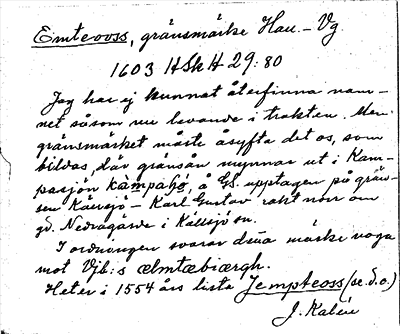 Emteooss, gränsmärke Hall. - Vg
1603 HSkH 29:80
Jag har ej kunnat återfinna nam-
net såsom nu levande i trakten. Men
gränsmärket måste åsyfta det os, som
bildas, där gränsån mynnar ut i Kam-
pasjön kampahe, å GS. upptagen på grän-
sen Källsjö - Karl Gustav rakt norr om
gd. Nedragärde i Källsjö sn.
I ordningen svarar dena märke noga
mot Vjb:s ælmtæbiærgh.
Heter i 1554 års lista Jempteoss (se.d.o.)
J. Kalén